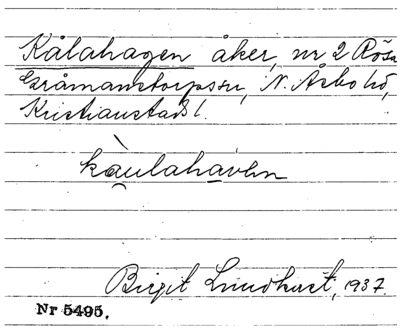 Kålahagen åker, nr 2 Rösa
Gråmanstorps sn, N. Åsbo hd,
Kristianstads l.
kàulahàvən
Birgit Lundqvist, 1937.
Nr 5495.